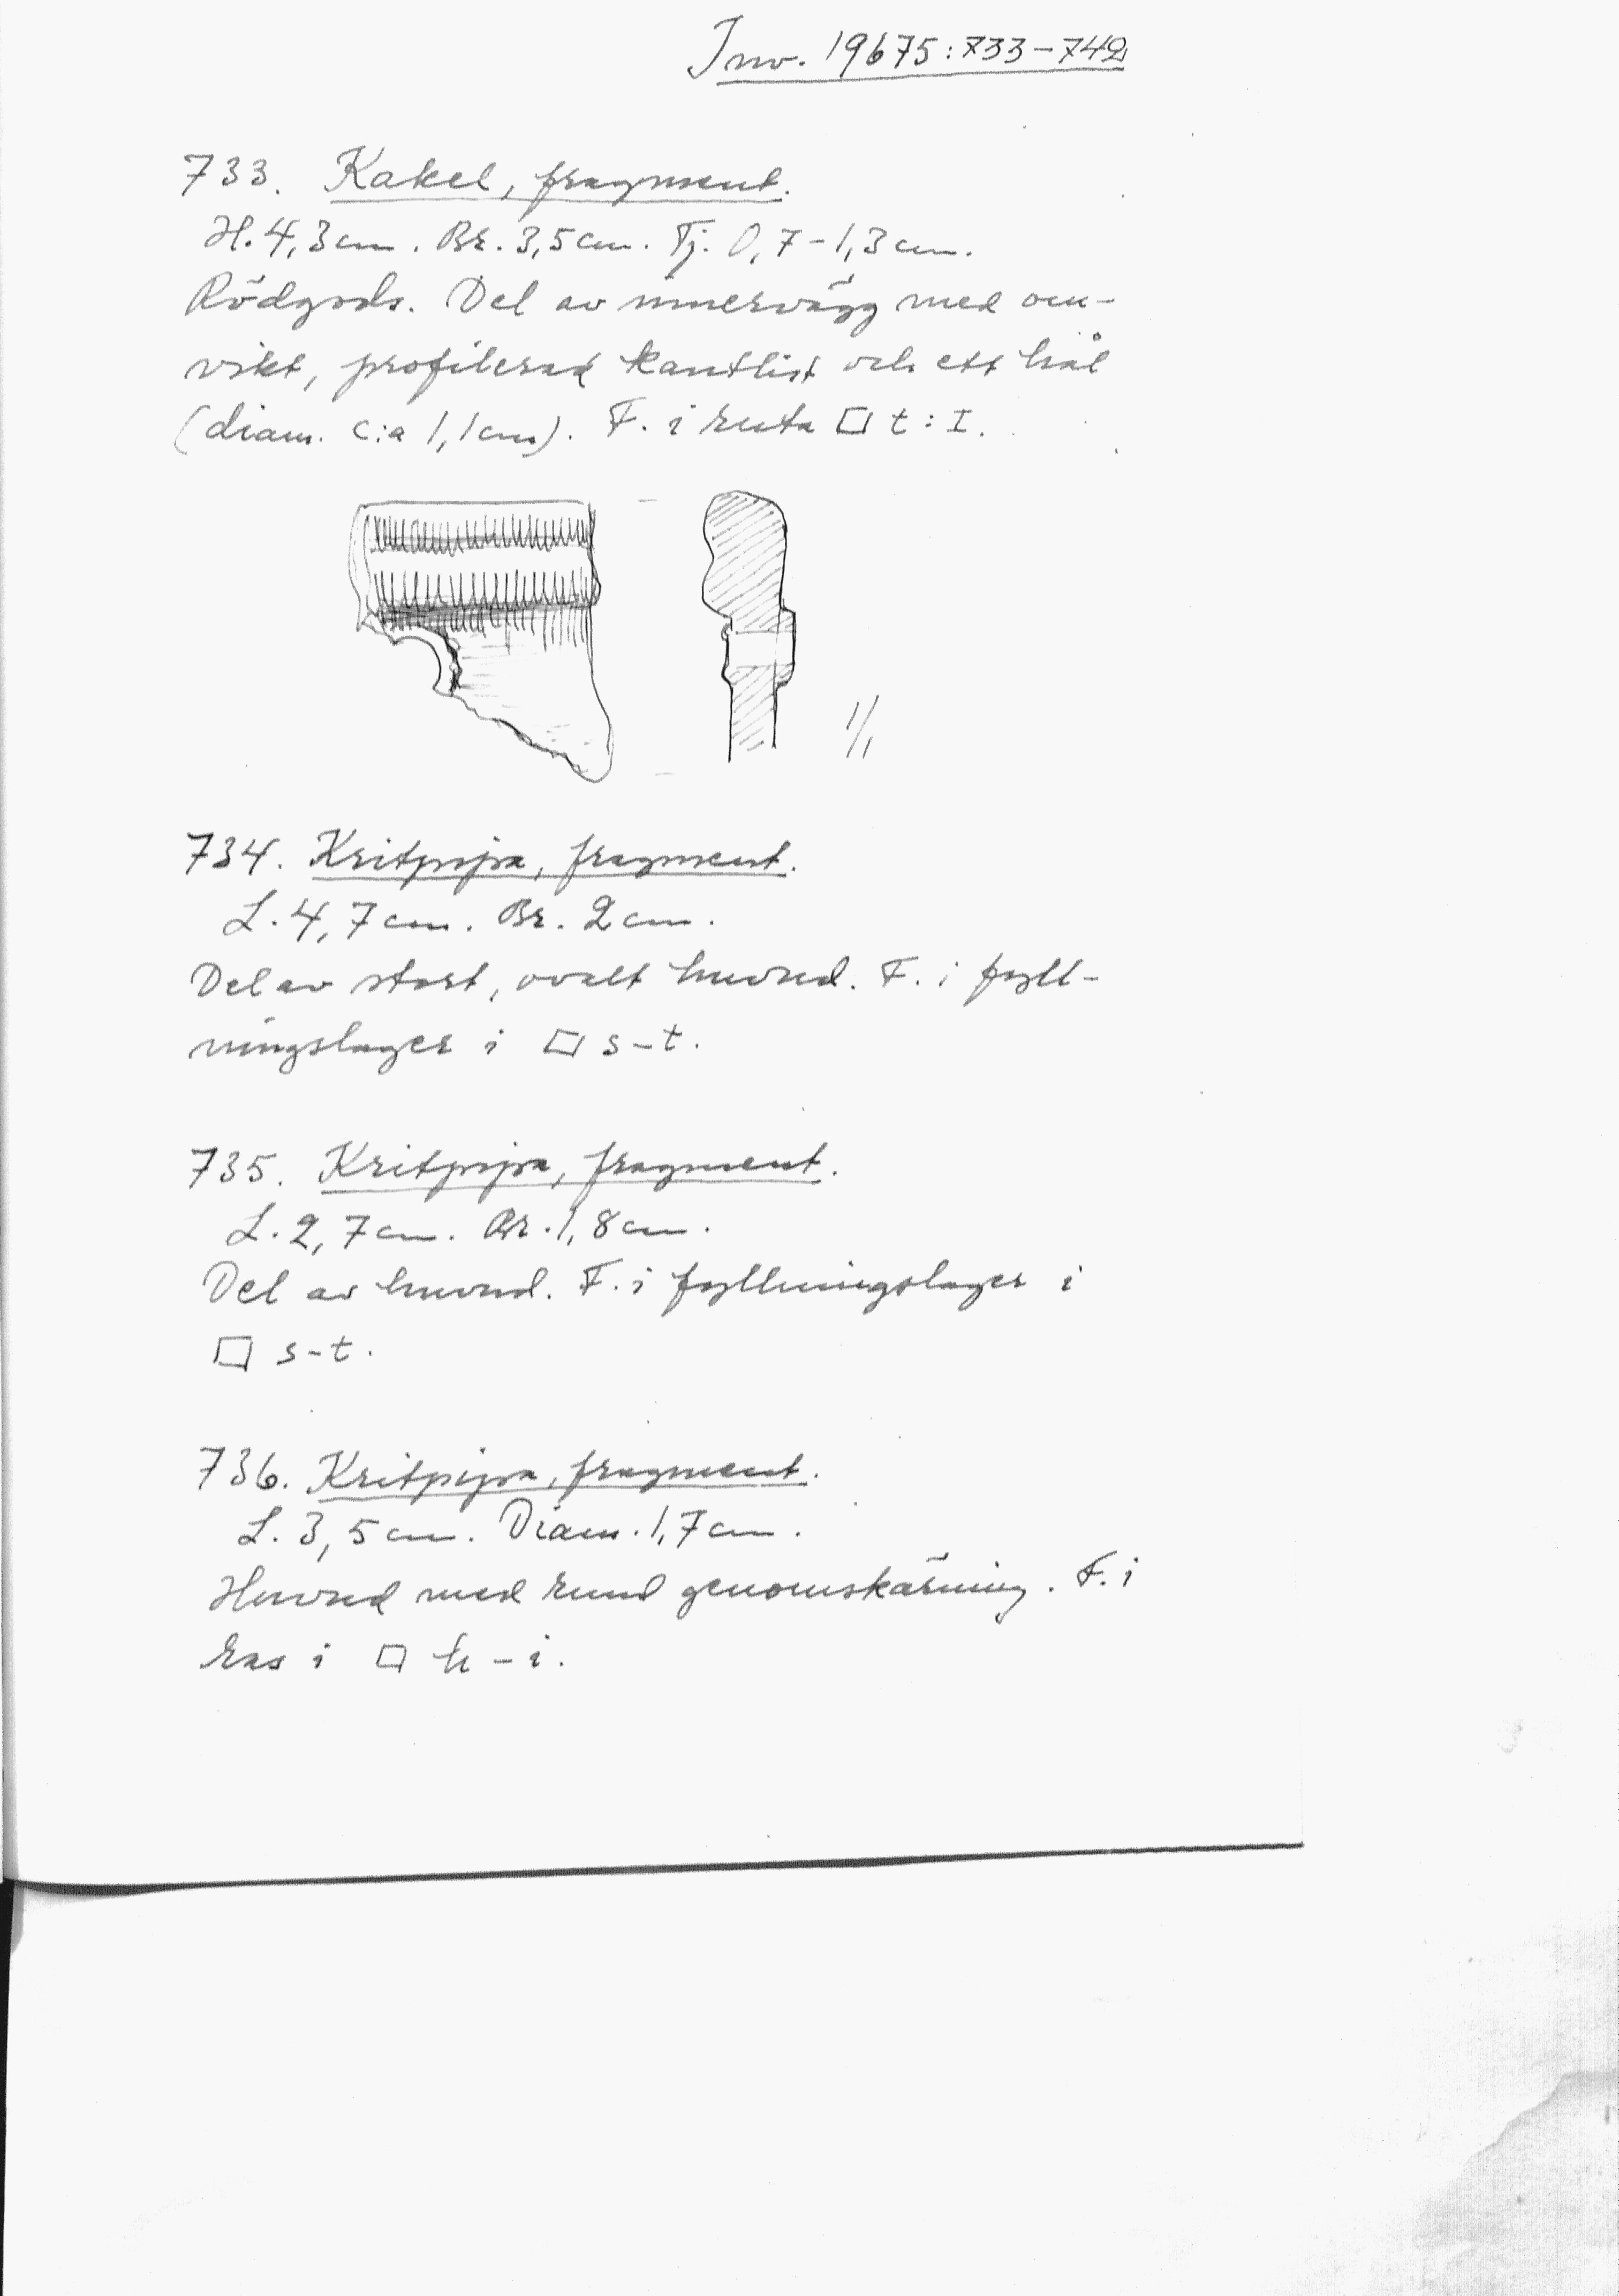 Inv. 19675:733-742
733. Kakel, fragment.
H. 4,3 cm. Br. 3,5 cm. Tj. 0,7-1,3 cm.
Rödgods. Del av innervägg med om-
vikt, profilerad kantlist och ett hål
(diam. c:a 1,1 cm). F. i ruta □ t:I.
1/1
734. Kritpipa, fragment.
L. 4,7 cm. Br. 2 cm.
Del av stort, ovalt huvud. F. i fyll-
ningslager i □ s-t.
735. Kritpipa, fragment.
L. 2,7 cm. Br. 1,8 cm.
Del av huvud. F. i fyllningslager i
□ s-t.
736. Kritpipa, fragment.
L. 3,5 cm. Diam. 1,7 cm.
Huvud med rund genomskärning. F. i
ras i □ h-i.